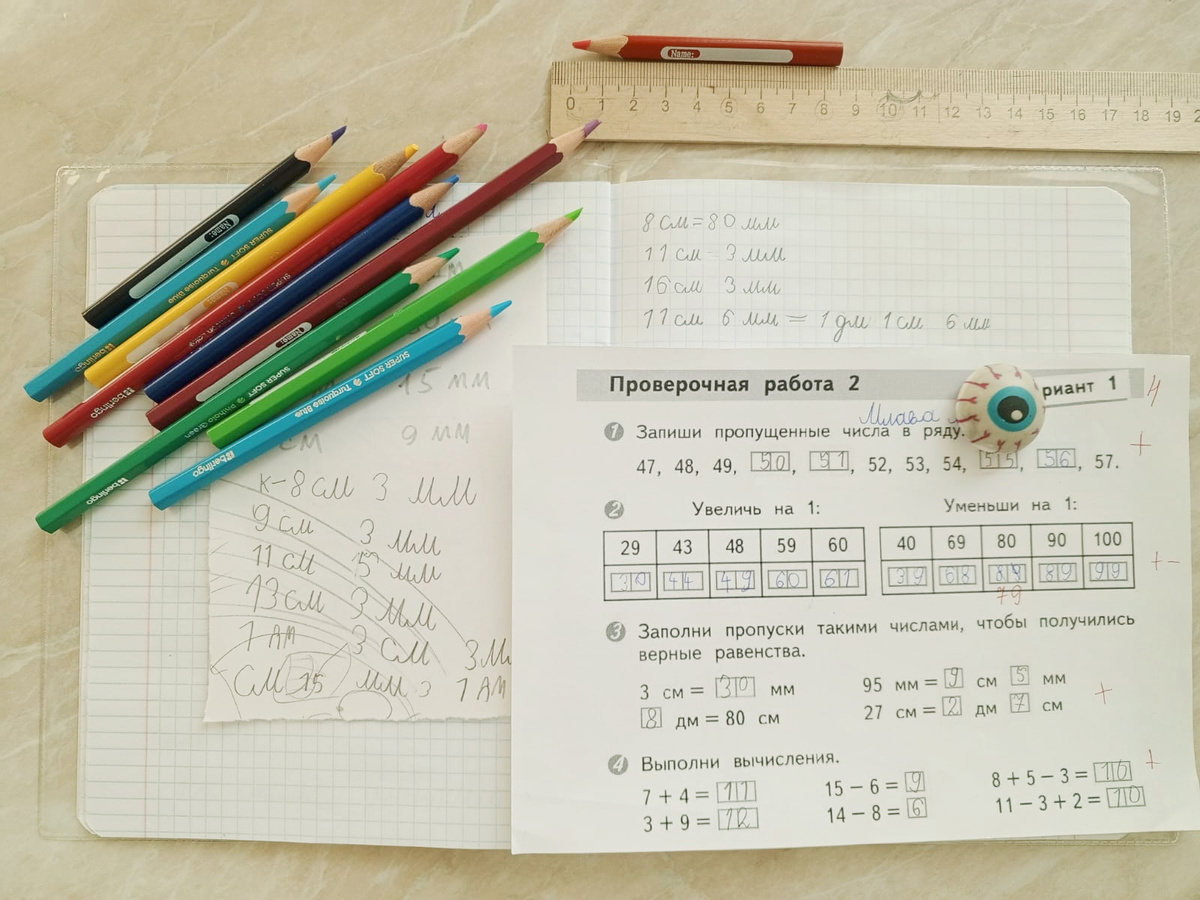 Name:
0 1 2 3 4 5 6 7 8 9 10 11 12 13 14 15 16 17 18 19
Name:
SUPER SOFT Turquoise Blue
berlingo
berlingo
Name:
SUPER SOFT Phthalo Green
berlingo
SUPER SOFT Turquoise Blue
berlingo
8 см = 80 мм
11 см 3 мм
16 см 3 мм
11 см 6 мм = 1 дм 1 см 6 мм
15 мм
см 9 мм
к-8 см 3 мм
9 см 3 мм
11 см 5 мм
13 см 3 мм
1 дм 3 см 3 м
см 15 мм 3 1 дм
Проверочная работа 2 риант 1 4
1 Запиши пропущенные числа в ряду.
47, 48, 49, 50, 51, 52, 53, 54, 55, 56, 57. +
2 Увеличь на 1: Уменьши на 1:
29 43 48 59 60 40 69 80 90 100
30 44 49 60 61 39 68 89 99 + -
79
3 Заполни пропуски такими числами, чтобы получились
верные равенства.
3 см = 30 мм 95 мм = 9 см 5 мм
8 дм = 80 см 27 см = 2 дм 7 см +
4 Выполни вычисления. +
7 + 4 = 11 15 − 6 = 9 8 + 5 − 3 = 10
3 + 9 = 12 14 − 8 = 6 11 − 3 + 2 = 10